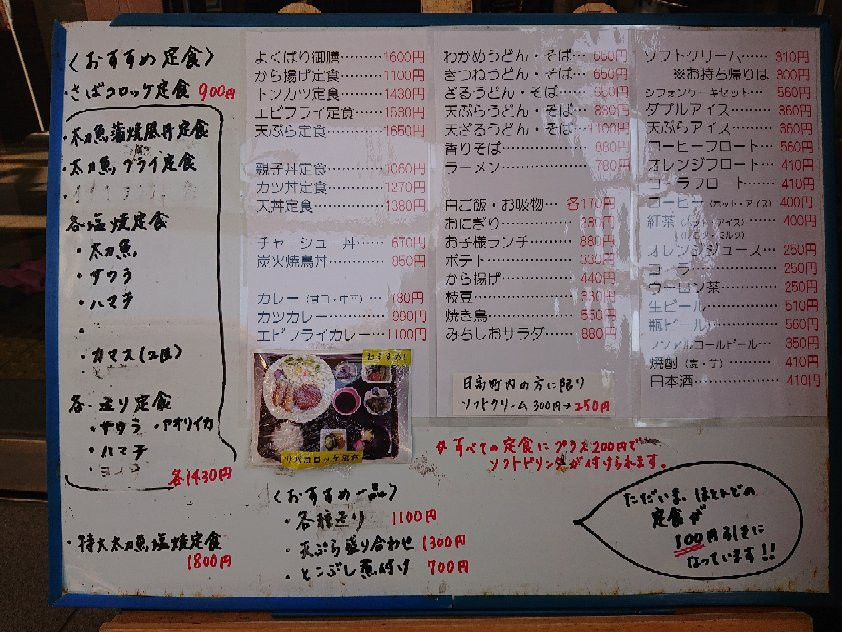 〈おすすめ定食〉
・さばコロッケ定食 900円
・太刀魚蒲焼風丼定食
・太刀魚フライ定食
各塩焼定食
・太刀魚
・サワラ
・ハマチ
・カマス(2匹)
各造り定食
・サワラ アオリイカ
・ハマチ
各1430円
・特大太刀魚塩焼定食
1800円
よくばり御膳………1600円
から揚げ定食………1100円
トンカツ定食………1430円
エビフライ定食……1530円
天ぷら定食…………1650円
親子丼定食…………1060円
カツ丼定食…………1270円
天丼定食……………1380円
チャーシュー丼……670円
炭火焼鳥丼…………850円
カレー(甘口・中辛)…780円
カツカレー…………990円
エビフライカレー…1100円
おすすめ!
サバコロッケ定食
〈おすすめ一品〉
・各種造り 1100円
・天ぷら盛り合わせ 1300円
・とこぶし煮付け 700円
わかめうどん・そば…650円
きつねうどん・そば…650円
ざるうどん・そば
天ぷらうどん・そば
天ざるうどん・そば…1100円
香りそば……………880円
ラーメン……………780円
白ご飯・お吸物…各170円
おにぎり……………280円
お子様ランチ………880円
ポテト………………330円
から揚げ……………440円
枝豆…………………330円
焼き鳥………………550円
みちしおサラダ……880円
日高町内の方に限り
ソフトクリーム300円→250円
ソフトクリーム……310円
※お持ち帰りは 300円
シフォンケーキセット…560円
ダブルアイス………350円
天ぷらアイス………350円
コーヒーフロート…560円
オレンジフロート…410円
コーラフロート……410円
コーヒー(ホット・アイス)400円
紅茶(ホット・アイス)400円
(レモン・ミルク)
オレンジジュース…250円
コーラ………………250円
ウーロン茶…………250円
生ビール……………510円
瓶ビール……………560円
ノンアルコールビール…350円
焼酎(麦・芋)………410円
日本酒………………410円
※すべての定食にプラス200円で
ソフトドリンクが付けられます。
ただいま、ほとんどの
定食が
100円引きに
なっています!!